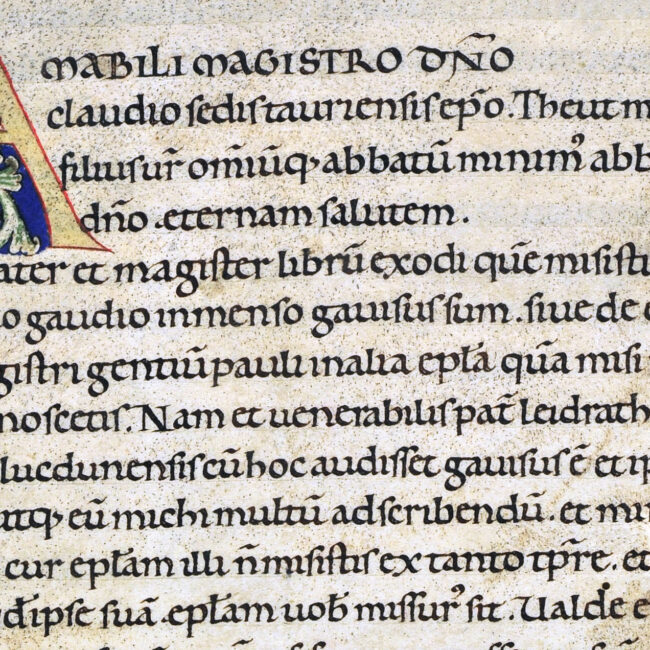 AMABILI MAGISTRO DÑO
claudio sedis tauriensis ep̄o. Theut m
filius ur̄ om̄iūq; abbatū minimꝰ abb
dño .eternam salutem.
ater et magister librū exodi quē misisti
o gaudio inmenso gauisus sum. siue de
gistri gentiū pauli in alia ep̄la quā misi
noscetis. Nam et uenerabilis pat̄ leidrath
lucdunensis cū hoc audisset gauisus ē et ip
atq; eū michi multū ad scribendū. et mi
cur ep̄lam illi n̄ misistis ex tanto tp̄re. et
d̄ ipse suā .ep̄lam uob̄ missurꝰ sit. Ualde e